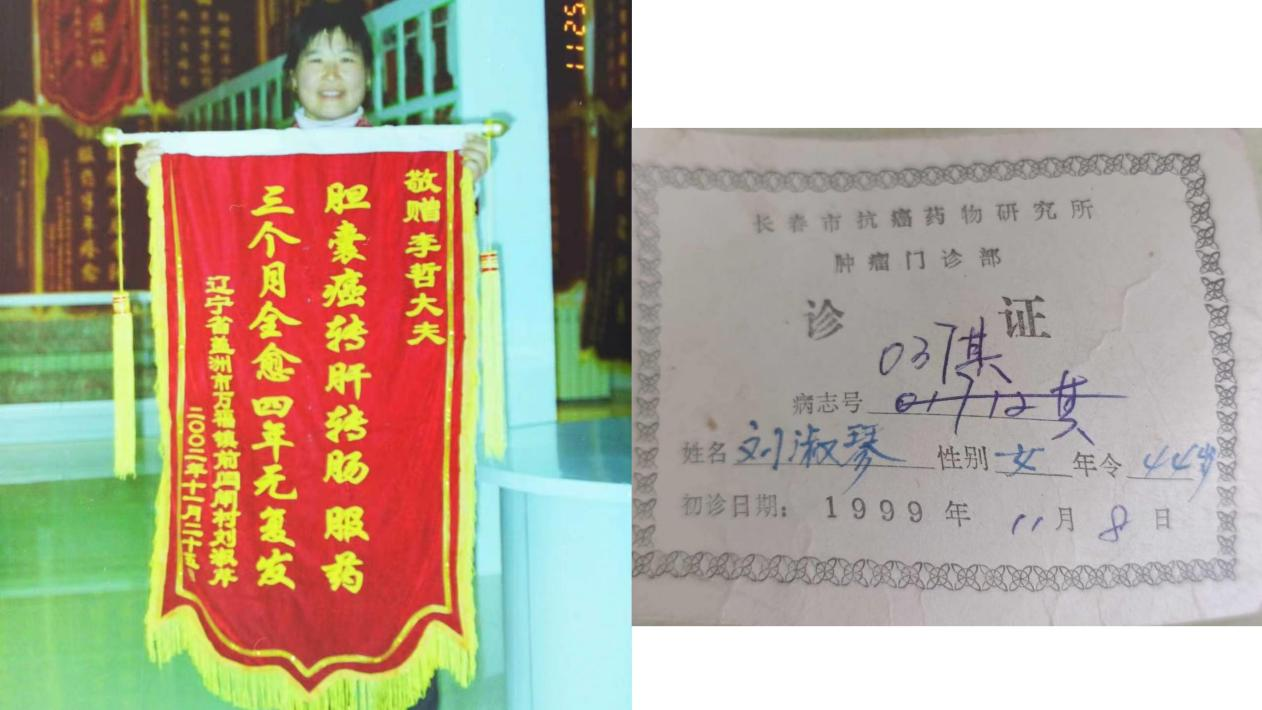 敬赠李哲大夫
胆囊癌转肝转肠 服药
三个月全愈四年无复发
辽宁省盖洲市万福镇前四村刘淑
二00二年十一月二十五
11 25
长春市抗癌药物研究所
肿瘤门诊部
诊 证
037其
病志号 01712其
姓名 刘淑琴 性别 女 年令 44岁
初诊日期: 1999年 11月 8日